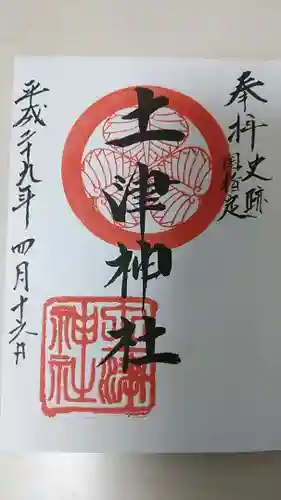 奉拝
史跡
国指定
土津神社
土津
神社
平成二十九年四月十六日